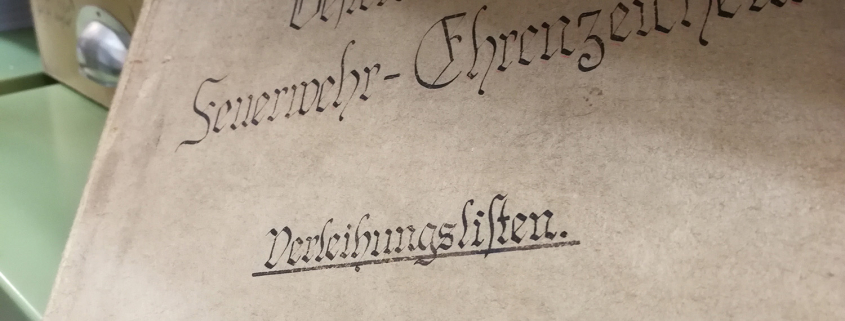 Feuerwehr-Ehrenzeichen
Verleihungslisten.